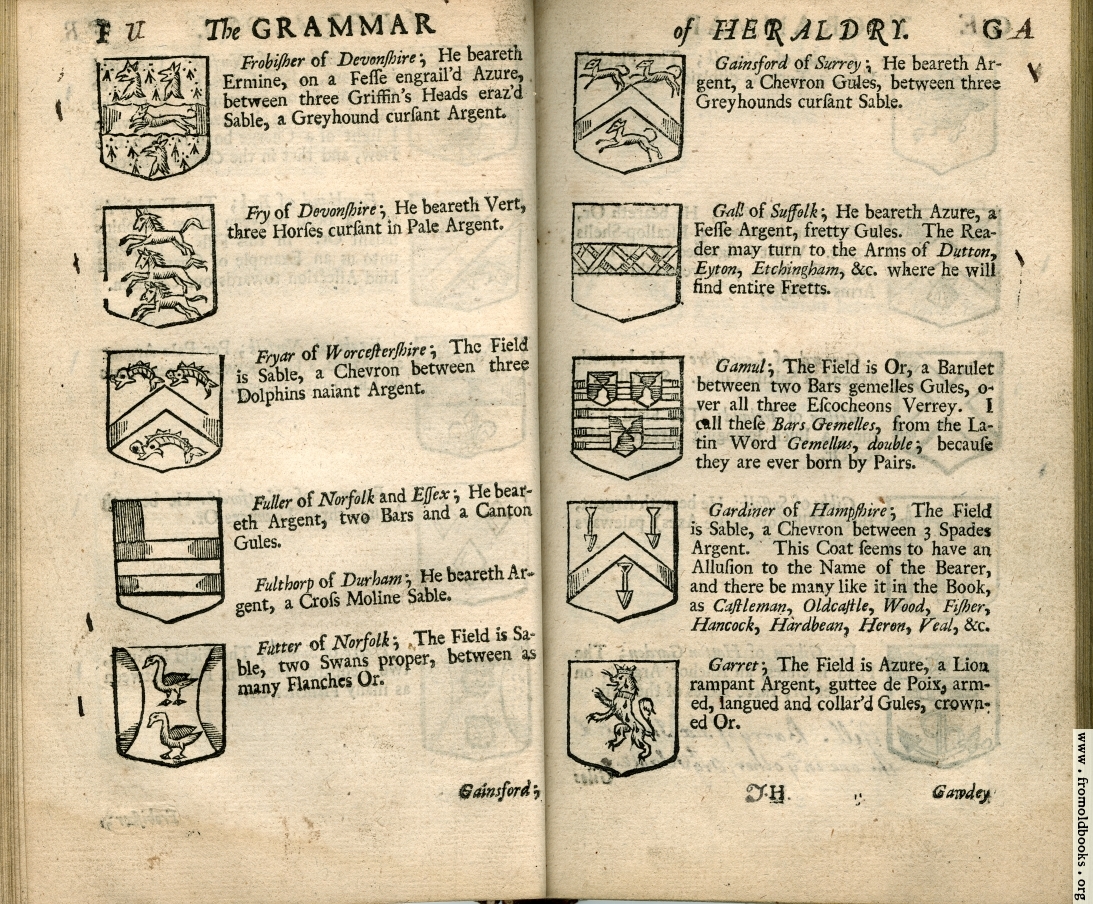 F U The GRAMMAR
Frobiſher of Devonſhire; He beareth
Ermine, on a Feſſe engrail'd Azure,
between three Griffin's Heads eraz'd
Sable, a Greyhound curſant Argent.
Fry of Devonſhire; He beareth Vert,
three Horſes curſant in Pale Argent.
Fryar of Worceſterſhire; The Field
is Sable, a Chevron between three
Dolphins naiant Argent.
Fuller of Norfolk and Eſſex; He bear-
eth Argent, two Bars and a Canton
Gules.
Fulthorp of Durham; He beareth Ar-
gent, a Croſs Moline Sable.
Futter of Norfolk; The Field is Sa-
ble, two Swans proper, between as
many Flanches Or.
Gainsford;
of HERALDRY. G A
Gainsford of Surrey; He beareth Ar-
gent, a Chevron Gules, between three
Greyhounds curſant Sable.
Gall of Suffolk; He beareth Azure, a
Feſſe Argent, fretty Gules. The Rea-
der may turn to the Arms of Dutton,
Eyton, Etchingham, &c. where he will
find entire Fretts.
Gamul; The Field is Or, a Barulet
between two Bars gemelles Gules, o-
ver all three Eſcocheons Verrey. I
call theſe Bars Gemelles, from the La-
tin Word Gemellus, double; becauſe
they are ever born by Pairs.
Gardiner of Hampſhire; The Field
is Sable, a Chevron between 3 Spades
Argent. This Coat ſeems to have an
Alluſion to the Name of the Bearer,
and there be many like it in the Book,
as Caſtleman, Oldcaſtle, Wood, Fiſher,
Hancock, Hardbean, Heron, Veal, &c.
Garret; The Field is Azure, a Lion
rampant Argent, guttee de Poix, arm-
ed, langued and collar'd Gules, crown-
ed Or.
J.H. Gawdey
www.fromoldbooks.org